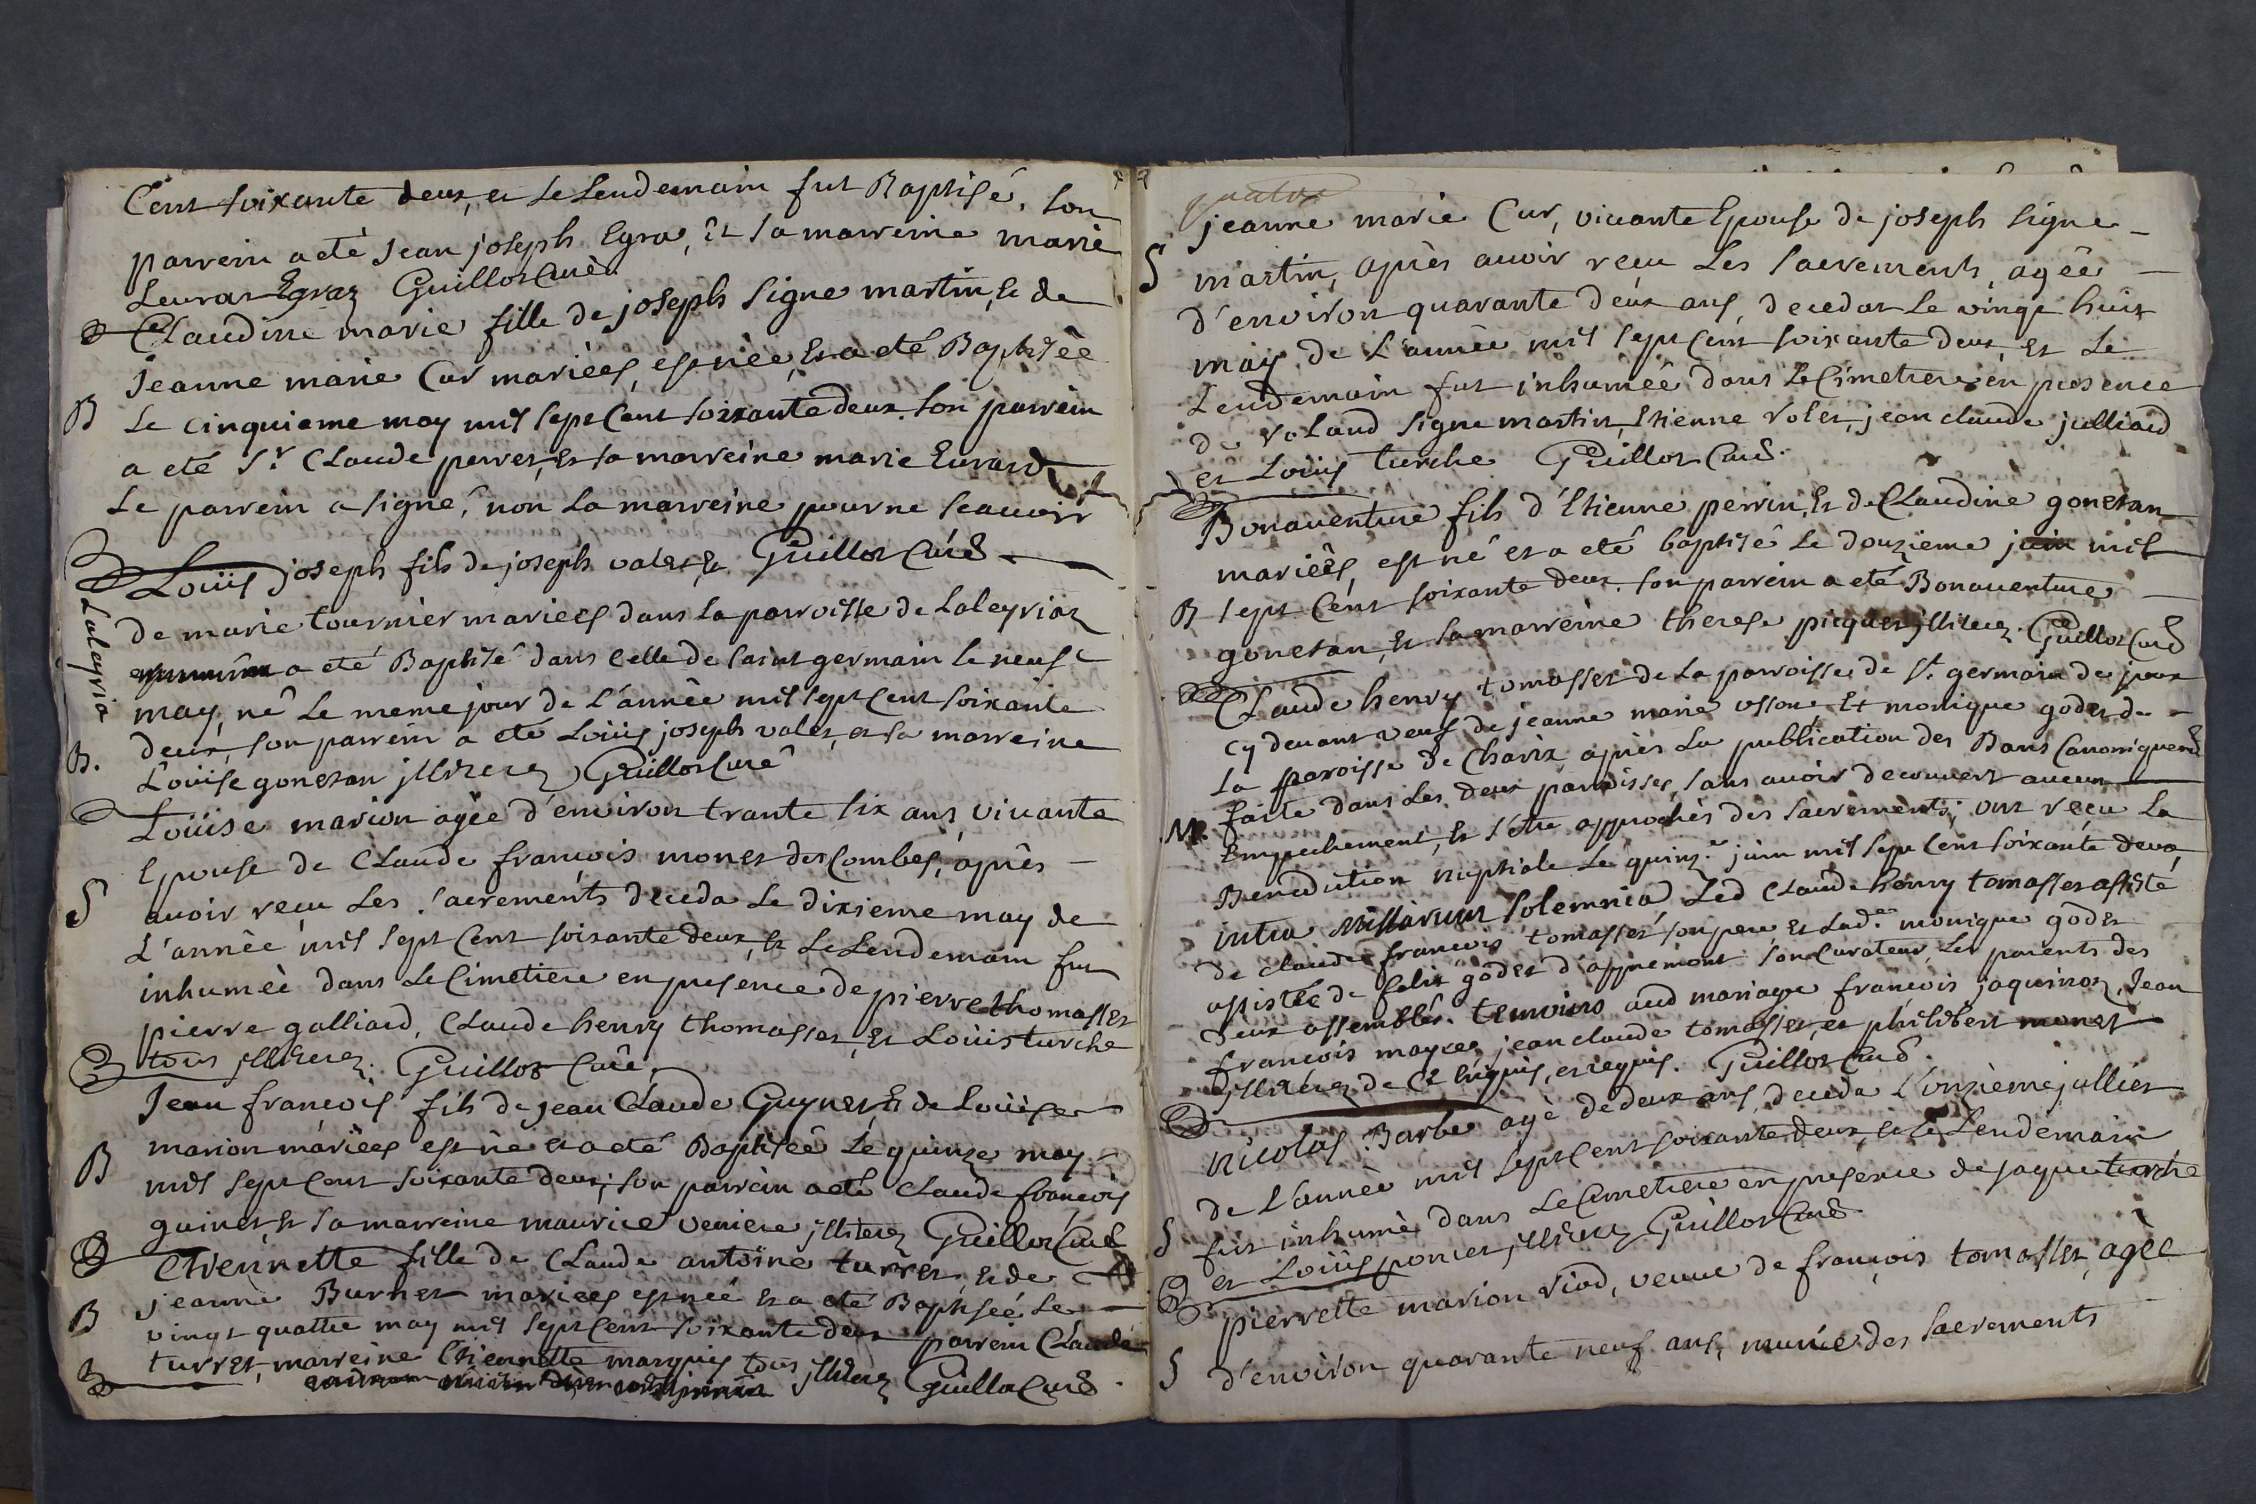 Cent soixante deux, et le Lendemain fut Baptisé. son
parrein a eté Jean joseph Egra, Et sa marreine marie
Levrat Egraz Guillot Curé.
Claudine marie fille de joseph signe martin, et de
Jeanne marie Cur mariées, est née, et a eté Baptisée
B Le cinquieme may mil sept Cent soixante deux. son parrein
a eté Sr Claude perret, et sa marreine marie Evrard
Le parrein a signé, non La marreine pour ne scauoir
Loüis joseph fils de joseph valet, et Guillot Curé
Laleyria
de marie tournier mariees dans la parroisse de Laleyriaz
a eté Baptisé dans Celle de saint germain le neuf
may, né Le meme jour de L'année mil sept Cent soixante
B. deux, son parrein a eté Loüis joseph valet, et sa marreine
Loüise gonetan jllitérez Guillot Curé
Loüise marion agée d'environ trante six ans, vivante
Epouse de Claude françois monet des Combes, après
S avoir reçu Les sacrements deceda Le dixieme may de
L'année mil sept Cent soixante deux, et Le Lendemain fut
inhumée dans Le Cimetiere en presence de pierre thomasset
pierre galliard, Claude henry thomasset, et Loüis turche
tous jlliterez. Guillot Curé.
Jean françois fils de jean Claude Guynet, et de Loüise
B marion mariées est né et a eté Baptiseé Le quinze may
mil sept Cent soixante deux, son parrein a eté Claude françois
guinet, et sa marreine maurice veniere jlliterez Guillot Curé
Etiennette fille de Claude antoine turret, et de
B jeanne Burnet mariees est neé et a eté Baptiseé Le
vingt quattre may mil sept Cent soixante deux parrein Claude
turret, marreine Etiennette marquis tous jlliterez Guillot Curé.
jeanne marie Cur, vivante Epouse de joseph signe
S martin, après avoir reçu Les sacrements, agée
d'environ quarante deux ans, decedat Le vingt huit
may de L'année mil sept Cent soixante deux, et Le
Lendemain fut inhumée dans Le Cimetiere en presence
de roland signe martin, Etienne volet, jean claude julliard
et Loüis turche Guillot Curé.
Bonaventure fils d'Etienne perrin, et de Claudine gonetan
mariées, est né et a eté baptisé Le douzieme juin mil
B sept Cent soixante deux. son parrein a eté Bonaventure
gonetan, et sa marreine therese piquet jlliterez. Guillot Curé
Claude henry tomasset de La parroisse de St. germain de joux
cy devant veuf de jeanne marie et monique godet de
La paroisse de Charix après La publication des Bans Canoniquemt
faite dans Les deux parroisses, sans avoir decouvert aucun
M. Empechement, et s'etre approchés des sacrements, ont reçu La
Benediction nuptiale Le quinze juin mil sept Cent soixante deux,
intra Missarum solemnia Led Claude henry tomasset assisté
de claude françois tomasset son pere et Lad.e monique godet
assistée de felix godet d'appremont son Curateur, Les parents des
deux assemblés. temoins aud mariage françois jaquinod, Jean
françois jean claude tomasset, et philibert monet
jlliterez de Ce Enquis, et requis. Guillot Curé.
Nicolas Barbe agé de deux ans, deceda L'onzieme juillet
de L'année mil sept Cent soixante deux, et Le Lendemain
S. fut inhumé dans Le Cimetiere en presence de jaque turche
et Loüis poncet jlliterez Guillot Curé.
pierrette marion riod, veuve de françois tomasset, agée
S d'environ quarante neuf ans, munie des sacrements